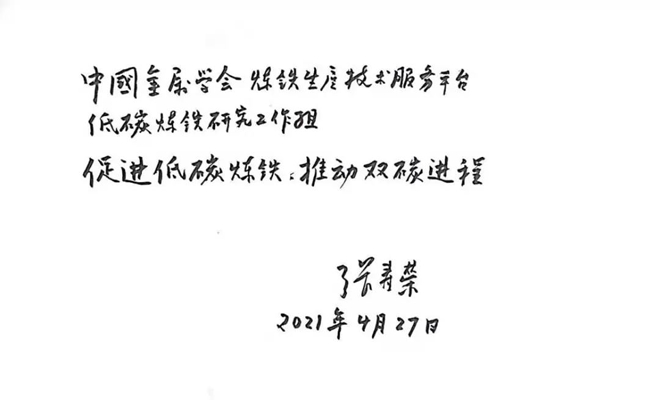 中國金属学会炼铁生产技术服务平台
低碳炼铁研究工作组
促进低碳炼铁，推动双碳进程
张寿荣
2021年4月27日